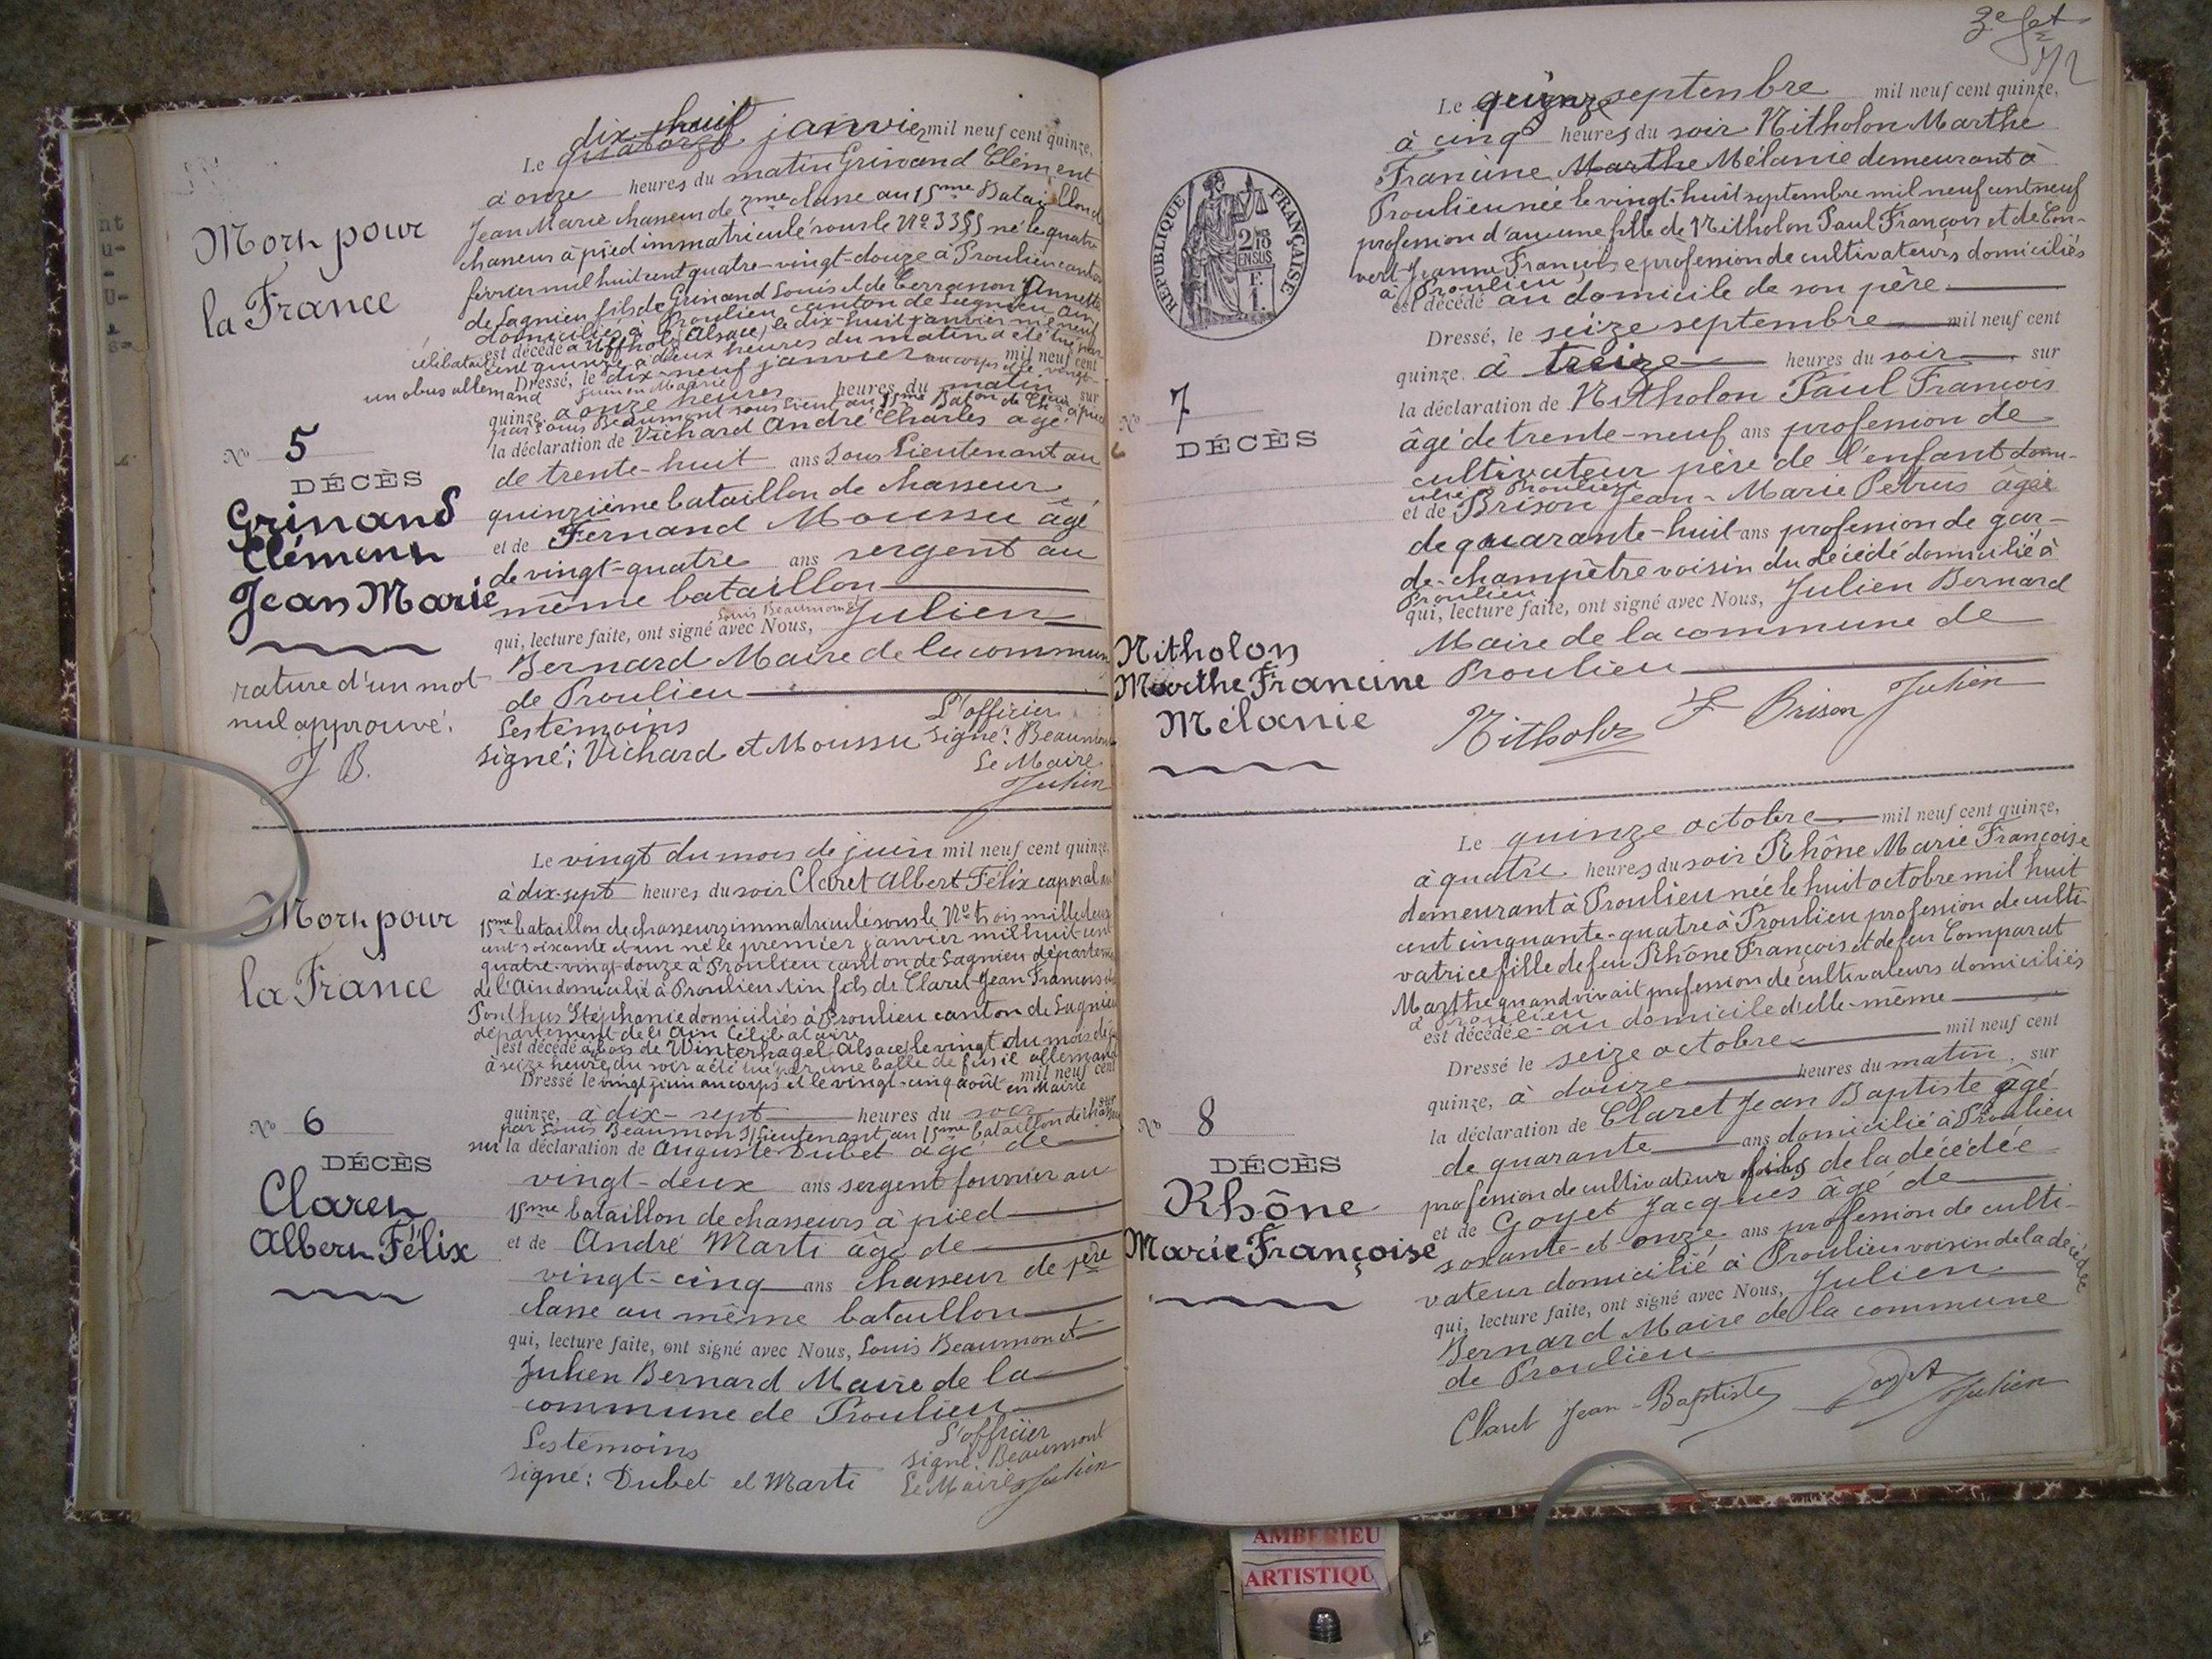 Mort pour
la France
N° 5
DÉCÈS
Grinand
Clément
Jean Marie
rature d'un mot
nul approuvé.
J B.
dix-huit
Le quatorze janvier mil neuf cent quinze,
à onze heures du matin Grinand Clément
Jean Marie chasseur de 2me classe au 15me Bataillon de
chasseurs à pied immatriculé sous le N° 3355 né le quatre
février mil huit cent quatre-vingt-douze à Proulieu canton
de Lagnieu fils de Grinand Louis et de Annette
domiciliés à Proulieu canton de Lagnieu Ain
célibataire est décédé à Uffholz (Alsace) le dix-huit janvier mil neuf
cent quinze à deux heures du matin a été tué par
un obus allemand Dressé, le dix-neuf janvier au corps et le vingt- mil neuf cent
juin en Mairie
quinze, à onze heures heures du matin sur
par Louis Beaumont sous lieut au 15me Baton de Chrs à pied
la déclaration de Vichard André Charles âgé
de trente-huit ans Sous Lieutenant au
quinzième bataillon de chasseur
et de Fernand Moussu âgé
de vingt-quatre ans sergent au
même bataillon
Louis Beaumont et
qui, lecture faite, ont signé avec Nous, Julien
Bernard Maire de la commune
de Proulieu
Les témoins L'officier
signé: Vichard et Moussu signé: Beaumont
Le Maire
Julien
Mort pour
la France
N° 6
DÉCÈS
Claret
Albert Félix
Le vingt du mois de juin mil neuf cent quinze,
à dix-sept heures du soir Claret Albert Félix caporal au
15me bataillon de chasseurs immatriculé sous le N° trois mille deux
cent soixante et un né le premier janvier mil huit cent
quatre-vingt-douze à Proulieu canton de Lagnieu département
de l'Ain domicilié à Proulieu Ain fils de Claret Jean François et de
Ponthus Stéphanie domiciliés à Proulieu canton de Lagnieu
département de l'Ain Célibataire
est décédé au bois de Winterhagel (Alsace) le vingt du mois de juin
à seize heures du soir a été tué par une balle de fusil allemand
Dressé le vingt juin au corps et le vingt-cinq août en Mairie mil neuf cent
quinze, à dix-sept heures du soir sur
par Louis Beaumont S/lieutenant au 15me bataillon de chasseurs
sur la déclaration de Auguste Dubet âgé de
vingt-deux ans sergent fourrier au
15me bataillon de chasseurs à pied
et de André Marti âgé de
vingt-cinq ans chasseur de 1ère
classe au même bataillon
qui, lecture faite, ont signé avec Nous, Louis Beaumont et
Julien Bernard Maire de la
commune de Proulieu
Les témoins L'officier
signé: Dubet et Marti signé: Beaumont
Le Maire Julien
3e
RÉPUBLIQUE FRANÇAISE
2/10 EN SUS
F.
1.
N° 7
DÉCÈS
Nitholon
Marthe Francine
Mélanie
Le quinze septembre mil neuf cent quinze,
à cinq heures du soir Nitholon Marthe
Francine Marthe Mélanie demeurant à
Proulieu née le vingt-huit septembre mil neuf cent neuf
profession d'aucune fille de Nitholon Paul François et de Con-
vert Jeanne Françoise profession de cultivateurs domiciliés
à Proulieu
est décédé au domicile de son père
Dressé, le seize septembre mil neuf cent
quinze, à treize heures du soir sur
la déclaration de Nitholon Paul François
âgé de trente-neuf ans profession de
cultivateur père de l'enfant domi-
cilié à Proulieu
et de Brison Jean-Marie Petrus âgé
de quarante-huit ans profession de gar-
de-champêtre voisin du décédé domicilié à
Proulieu
qui, lecture faite, ont signé avec Nous, Julien Bernard
Maire de la commune de
Proulieu
Nitholon Brison Julien
N° 8
DÉCÈS
Rhône
Marie Françoise
Le quinze octobre mil neuf cent quinze,
à quatre heures du soir Rhône Marie Françoise
demeurant à Proulieu née le huit octobre mil huit
cent cinquante-quatre à Proulieu profession de culti-
vatrice fille de feu Rhône François et de feu Comparat
Marthe quand vivait profession de cultivateurs domiciliés
à Proulieu
est décédée au domicile d'elle-même
Dressé le seize octobre mil neuf cent
quinze, à douze heures du matin, sur
la déclaration de Claret Jean Baptiste âgé
de quarante ans domicilié à Proulieu
profession de cultivateur fils de la décédée
et de Goyet Jacques âgé de
soxante-et onze ans profession de culti-
vateur domicilié à Proulieu voisin de la décédée
qui, lecture faite, ont signé avec Nous, Julien
Bernard Maire de la commune
de Proulieu
Claret Jean-Baptiste Goyet Julien
AMBERIEU
ARTISTIQU